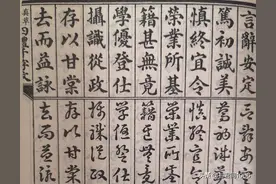 言辭安定
篤初誠美
慎終宜令
榮業所基
籍甚無竟
學優登仕
攝職從政
存以甘棠
去而益詠
言辭安定
篤初誠美
慎終宜令
榮業所基
籍甚無竟
學優登仕
攝職從政
存以甘棠
去而益詠
四體千字文